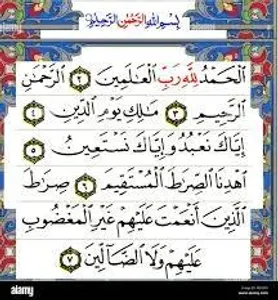 بِسْمِ اللَّهِ الرَّحْمَٰنِ الرَّحِيمِ
الْحَمْدُ لِلَّهِ رَبِّ الْعَالَمِينَ ٢ الرَّحْمَٰنِ
الرَّحِيمِ ٣ مَالِكِ يَوْمِ الدِّينِ ٤
إِيَّاكَ نَعْبُدُ وَإِيَّاكَ نَسْتَعِينُ ٥
اهْدِنَا الصِّرَاطَ الْمُسْتَقِيمَ ٦ صِرَاطَ
الَّذِينَ أَنْعَمْتَ عَلَيْهِمْ غَيْرِ الْمَغْضُوبِ
عَلَيْهِمْ وَلَا الضَّالِّينَ ٧
alamy